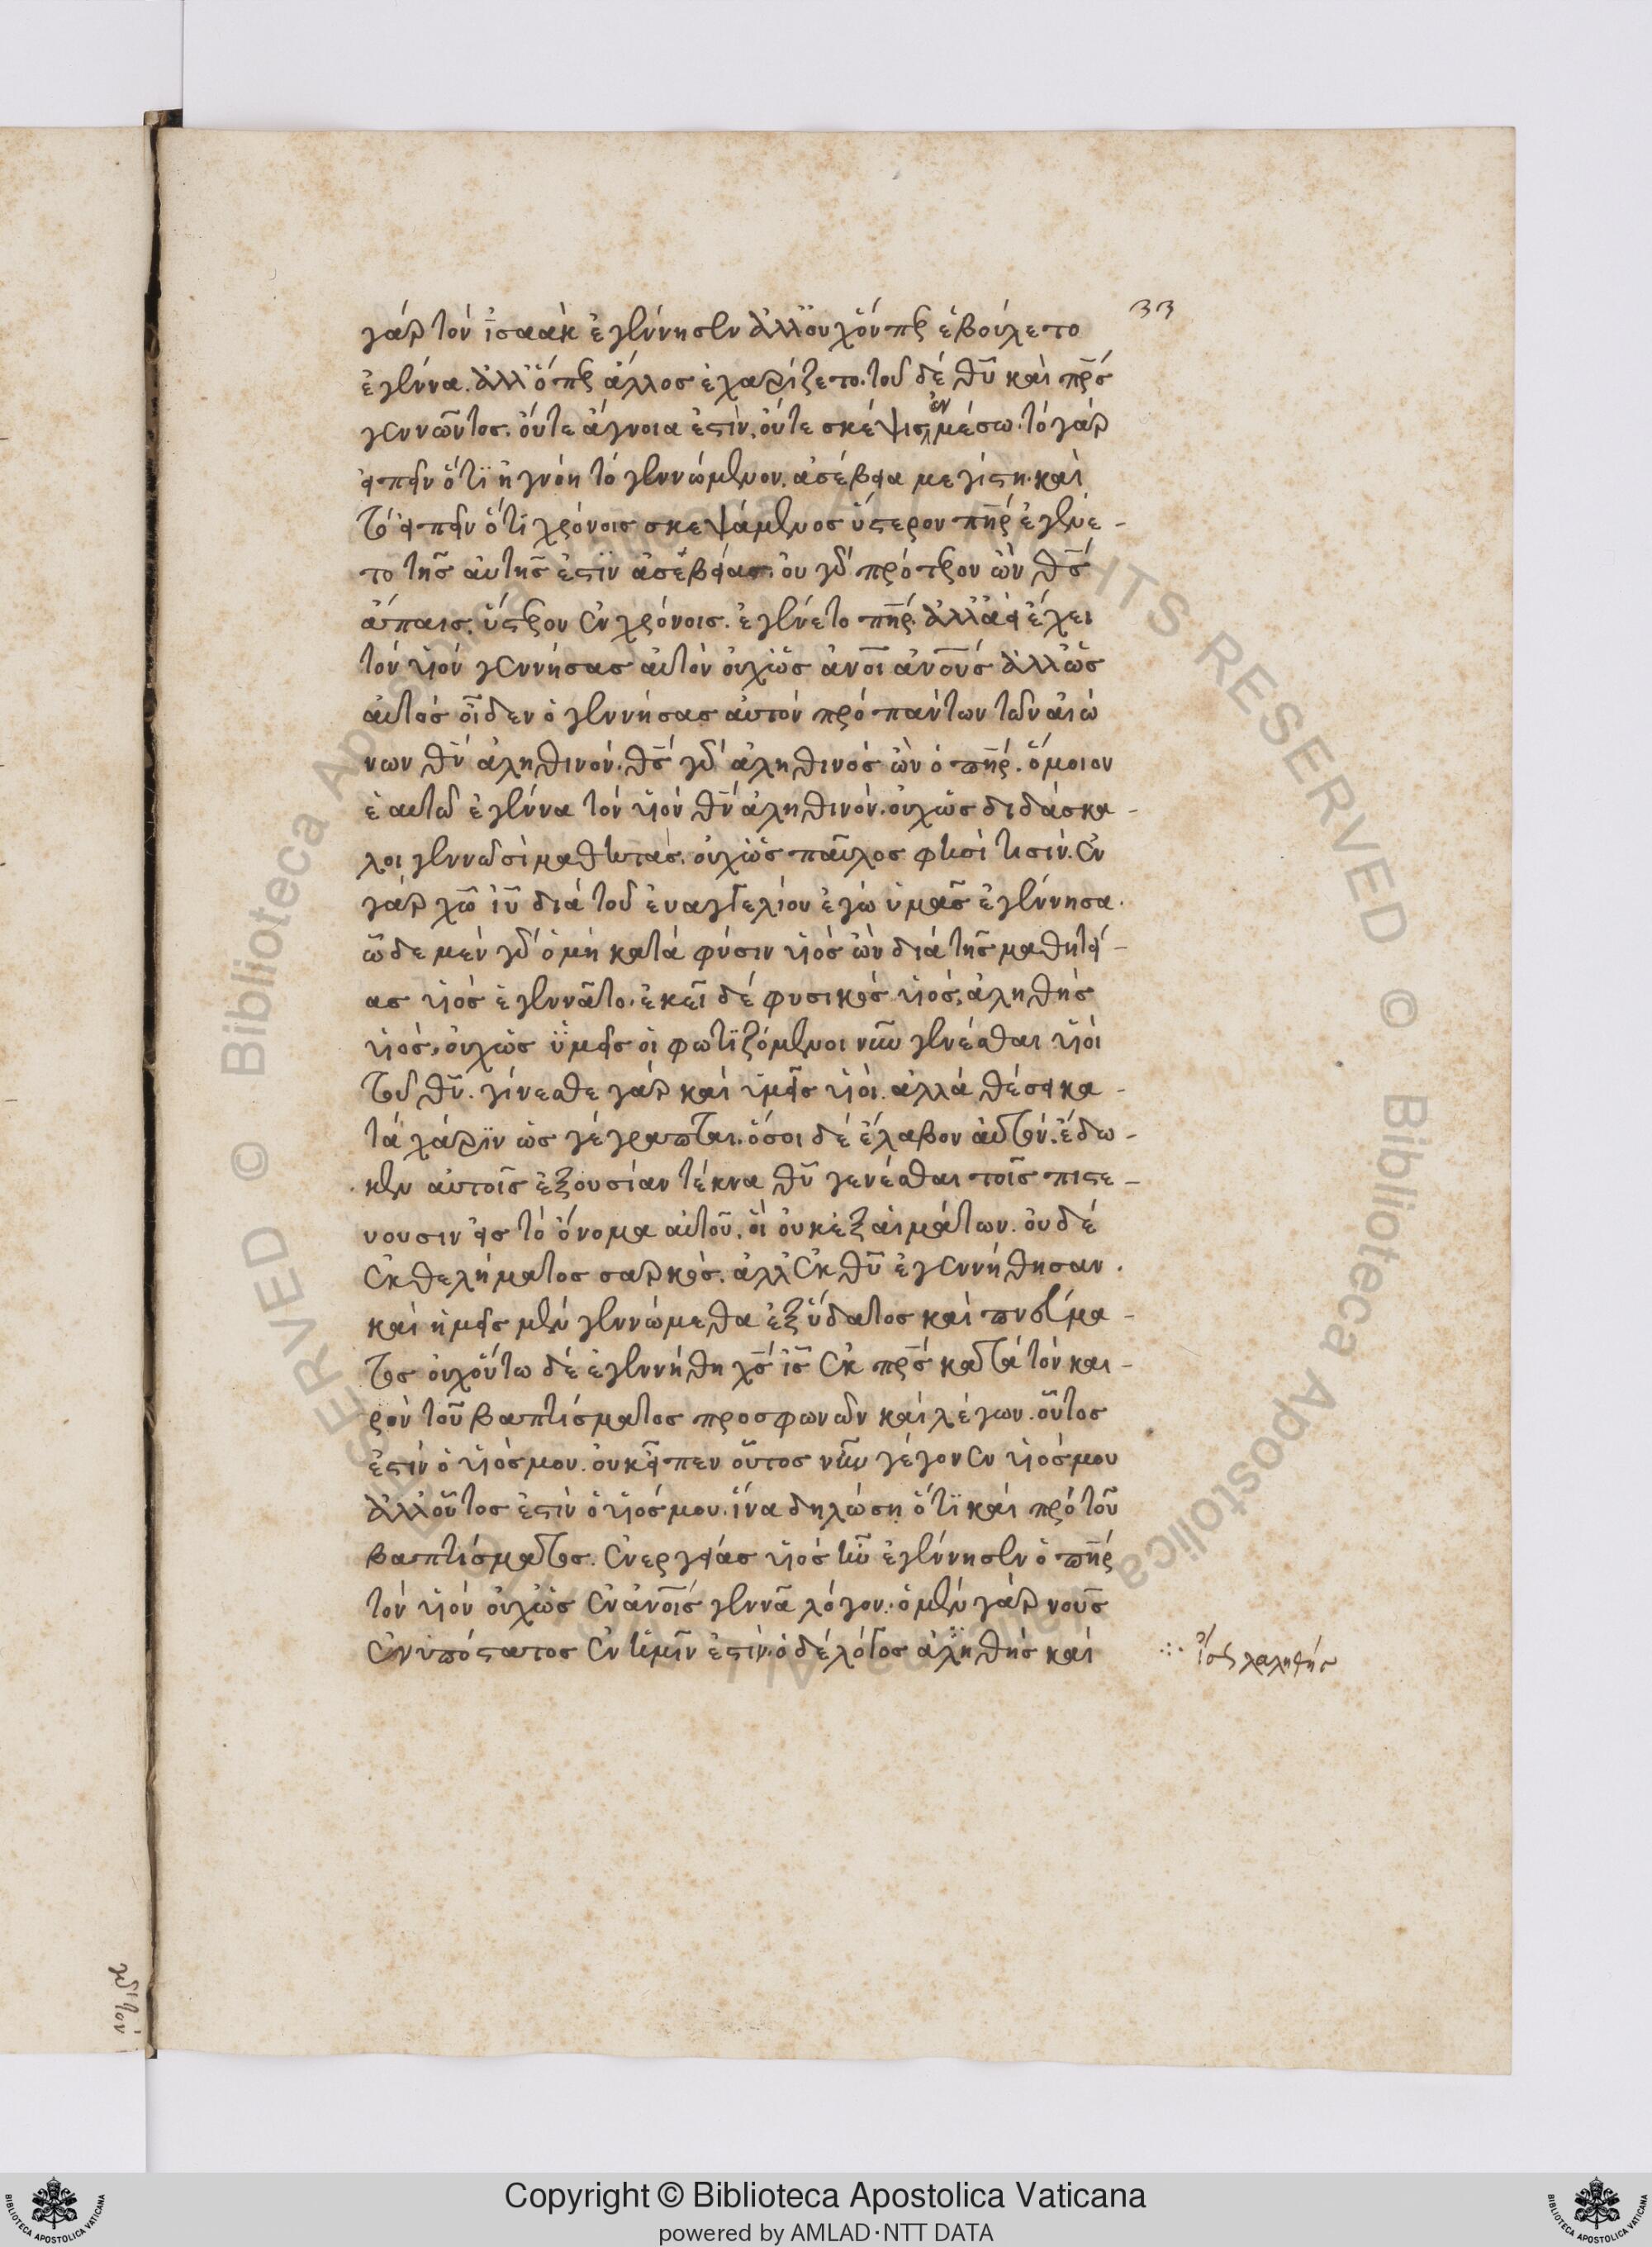 33
γὰρ τὸν ἰσαὰκ ἐγέννησεν ἀλλ' οὐχ ὅνπερ ἐβούλετο
ἐγέννα. ἀλλ' ὅπερ ἄλλος ἐχαρίζετο. τοῦ δὲ θ̅υ̅ καὶ π̅ρ̅ς̅
γεννῶντος. οὔτε ἄγνοια ἐστὶν. οὔτε σκέψις ἐν μέσω. τὸ γὰρ
εἰπεῖν ὅτι ἠγνόη τὸ γεννώμενον. ἀσέβεια μεγίστη. καὶ
τὸ εἰπεῖν ὅτι χρόνοις σκεψάμενος ὕστερον π̅η̅ρ̅ ἐγένε-
το τῆς αὐτῆς ἐστὶν ἀσεβείας. οὐ γὰρ πρότερον ὢν θ̅ς̅
ἄπαις. ὕστερον ἐν χρόνοις. ἐγένετο π̅η̅ρ̅. ἀλλ' ἀεὶ ἔχει
τὸν υἱὸν γεννήσας αὐτὸν οὐχ ὡς ἄν̅ο̅ι̅ ἀν̅ο̅υ̅ς̅ ἀλλ' ὡς
αὐτὸς οἶδεν ὁ γεννήσας αὐτὸν πρὸ πάντων τῶν αἰώ
νων θ̅ν̅ ἀληθινόν. θ̅ς̅ γὰρ ἀληθινὸς ὢν ὁ π̅η̅ρ̅. ὅμοιον
ἑαυτῶ ἐγέννα τὸν υἱὸν θ̅ν̅ ἀληθινόν. οὐχ ὡς διδάσκα-
λοι γεννῶσι μαθητάς. οὐχ ὡς παῦλος φησί τισιν. ἐν
γὰρ χ̅ω̅ ἰ̅υ̅ διὰ τοῦ εὐαγγελίου ἐγὼ ὑμᾶς ἐγέννησα.
ὧδε μὲν γὰρ ὁ μὴ κατὰ φύσιν υἱὸς ὢν διὰ τῆς μαθητεί-
ας υἱὸς ἐγεννᾶτο. ἐκεῖ δὲ φυσικὸς υἱός, ἀληθὴς
υἱός, οὐχ ὡς ὑμεῖς οἱ φωτιζόμενοι νῦν γενέσθαι υἱοὶ
τοῦ θ̅υ̅. γίνεσθε γὰρ καὶ ὑμεῖς υἱοὶ. ἀλλὰ θέσει κα-
τὰ χάριν ὡς γέγραπται. ὅσοι δὲ ἔλαβον αὐτόν. ἔδω-
κεν αὐτοῖς ἐξουσίαν τέκνα θ̅υ̅ γενέσθαι τοῖς πιστε-
υουσιν εἰς τὸ ὄνομα αὐτοῦ. οἳ οὐκ ἐξ αἱμάτων. οὐδὲ
ἐκ θελήματος σαρκός. ἀλλ' ἐκ θ̅υ̅ ἐγεννήθησαν.
καὶ ἡμεῖς μὲν γεννώμεθα ἐξ ὕδατος καὶ πνεύμα-
τος οὐχ οὕτω δὲ ἐγεννήθη χ̅ς̅ ἰ̅ς̅ ἐκ π̅ρ̅ς̅ κατὰ τὸν και-
ρὸν τοῦ βαπτίσματος προσφωνῶν καὶ λέγων. οὗτος
ἐστὶν ὁ υἱός μου. οὐκ εἶπεν οὗτος νῦν γέγονεν υἱός μου
ἀλλ' οὗτος ἐστὶν ὁ υἱός μου. ἵνα δηλώση ὅτι καὶ πρὸ τοῦ
βαπτίσματος. ἐνεργείας υἱὸς ἦν ἐγέννησεν ὁ π̅η̅ρ̅
τὸν υἱὸν οὐχ ὡς ἐν ἀν̅ο̅ι̅ς̅ γεννᾶ λόγον. ὁ μὲν γὰρ νοῦς
ἐνυπόστατος ἐν ἡμῖν ἐστὶν. ὁ δὲ λόγος ἀληθὴς καὶ
ἴσως λαληθεὶς
γὰρ τὸν
Copyright © Biblioteca Apostolica Vaticana
powered by AMLAD·NTT DATA